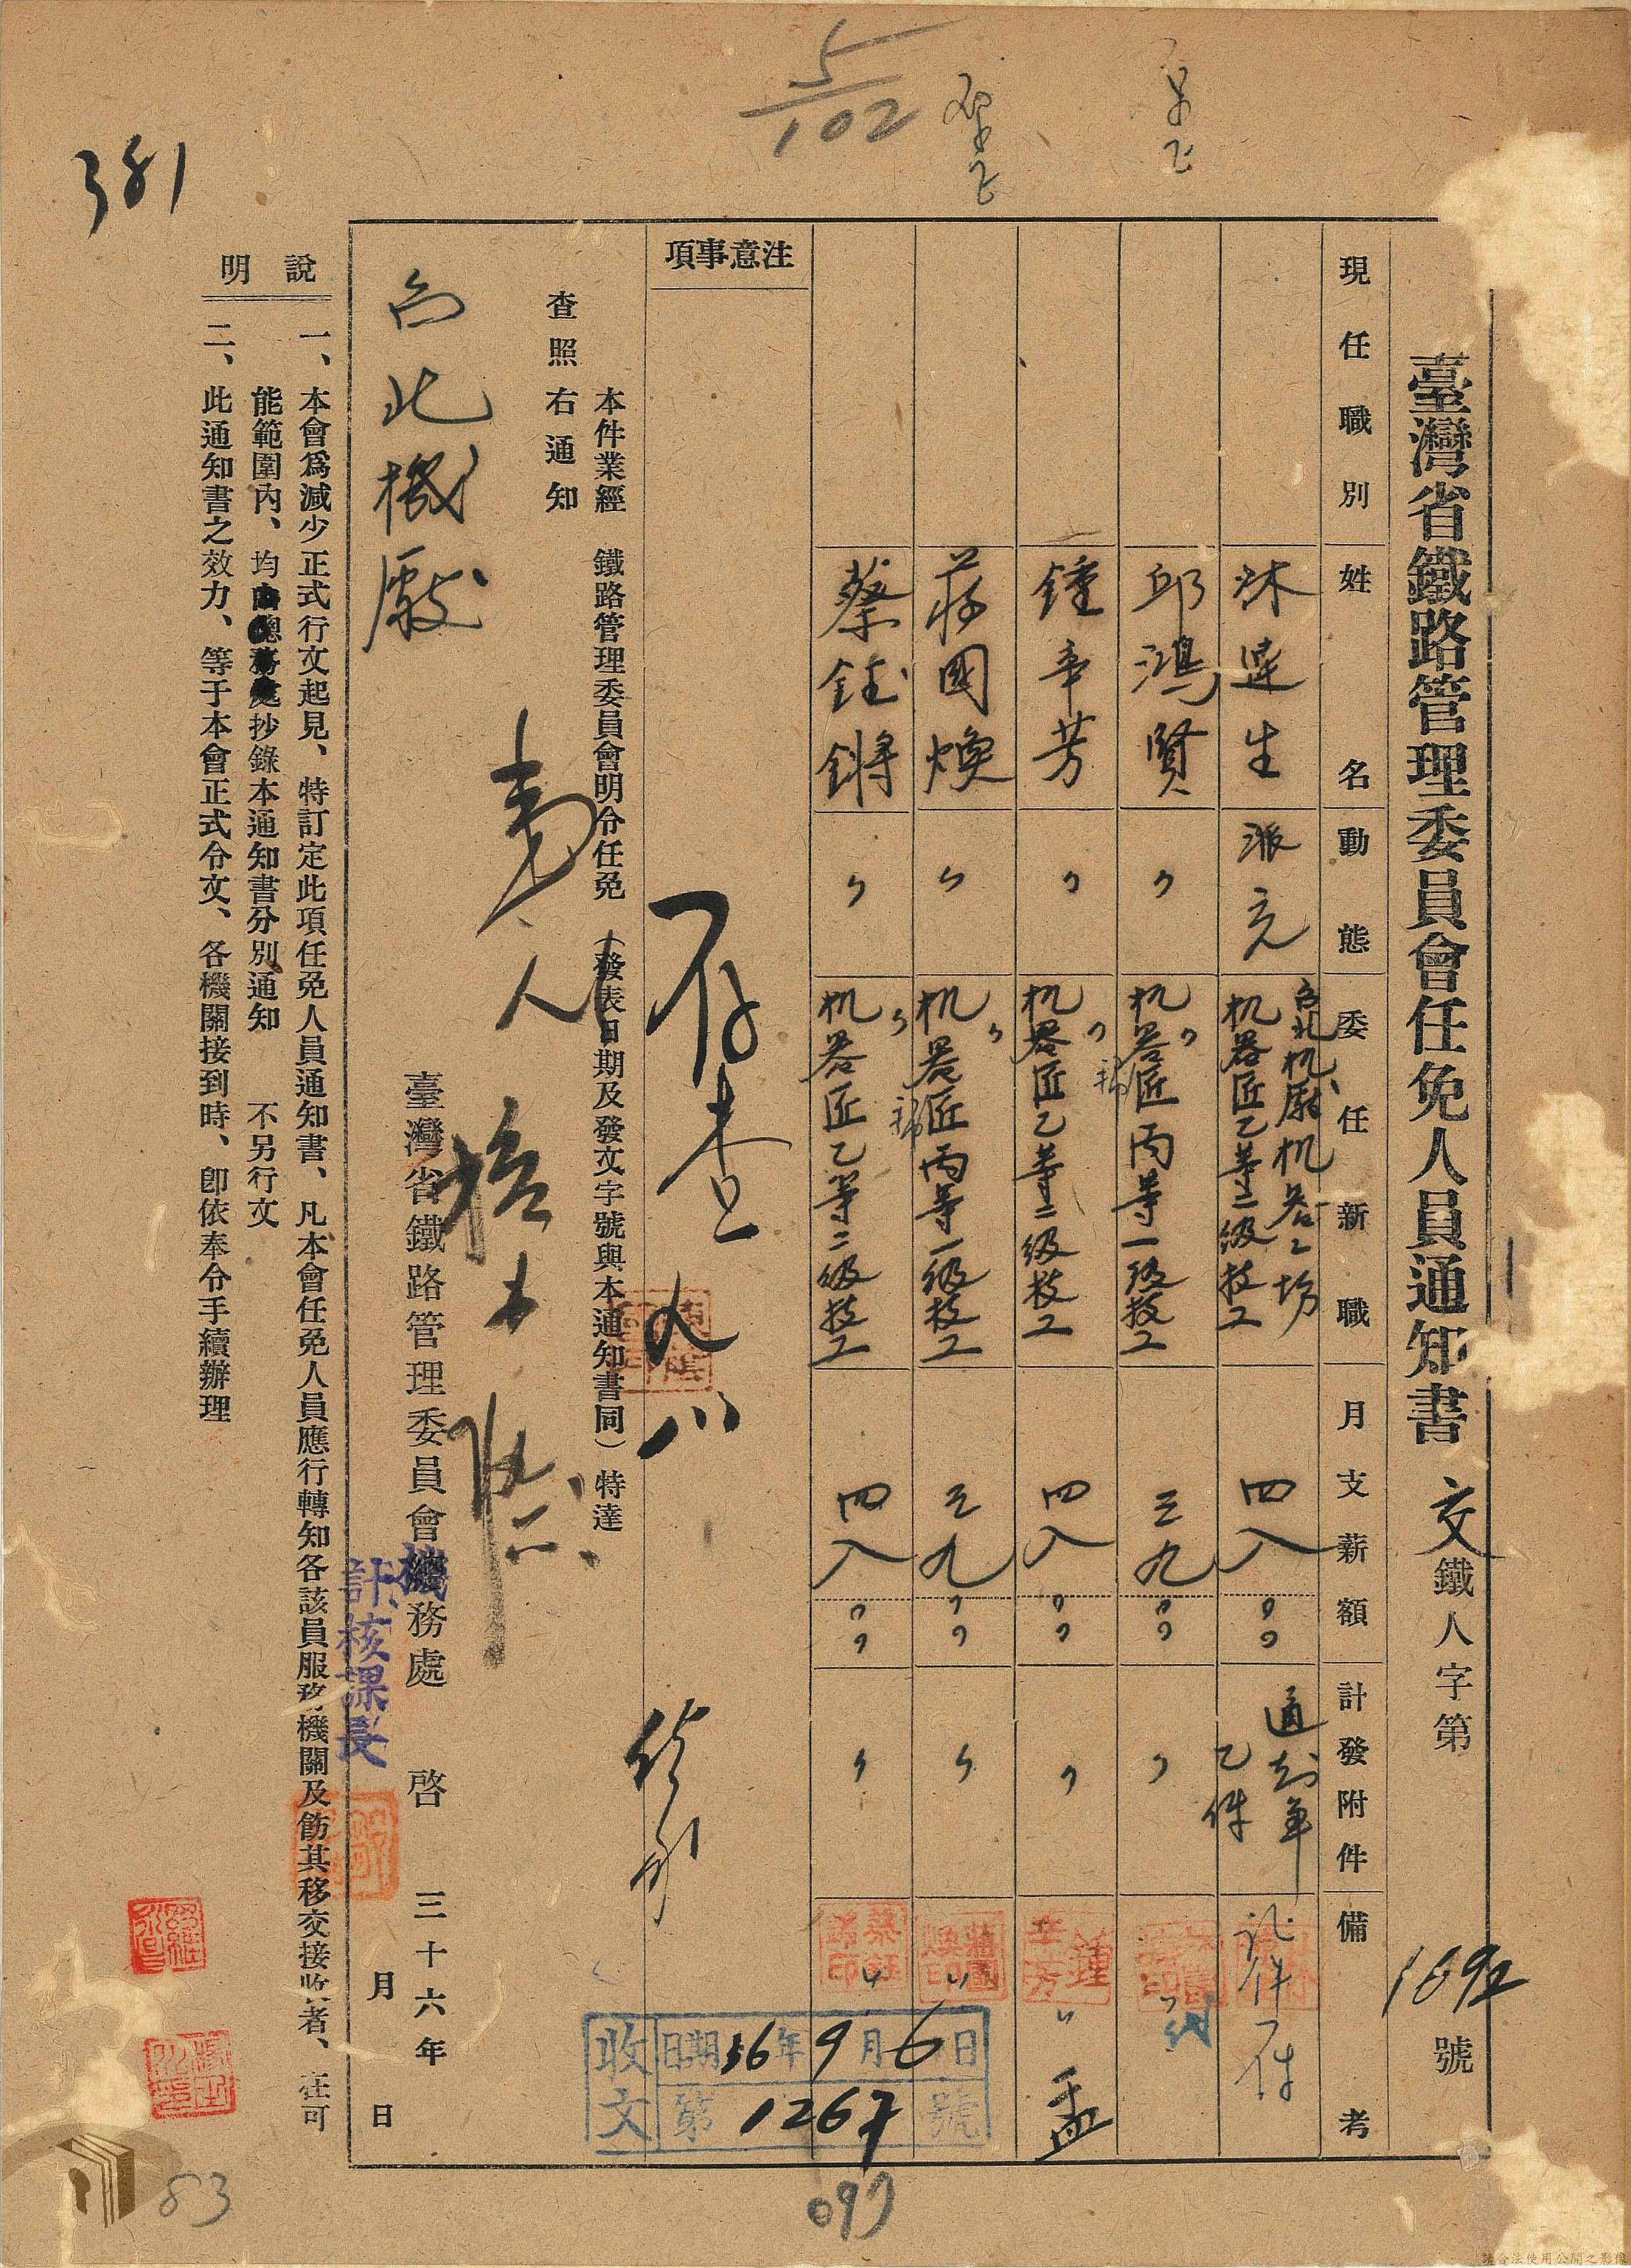 臺灣省鐵路管理委員會任免人員通知書 交鐵人字第1692號
現任職別 姓名 動態 委任新職 月支薪額 計發附件 備考
沐連生 派充 台北机廠机器工場 机器匠乙等二級技工 四八 〃〃 通知單乙件 託件一件
邱鴻賢 〃 〃 机器匠丙等一級技工 三九 〃〃 〃 〃
鍾幸芳 〃 〃 机器匠乙等二級技工 四八 〃〃 〃 〃
蔣國煥 〃 〃 机器匠丙等一級技工 三九 〃〃 〃 〃
蔡鈺鏘 〃 〃 机器匠乙等二級技工 四八 〃〃 〃 〃
孟
注意事項
存查
本件業經 鐵路管理委員會明令任免(發表日期及發文字號與本通知書同)特達
查照 右通知
台北機廠
臺灣省鐵路管理委員會機務處 啓 三十六年 月 日
計核課長
說明
一、本會爲減少正式行文起見、特訂定此項任免人員通知書、凡本會任免人員應行轉知各該員服務機關及飭其移交接收者、在可
能範圍內、均由總務處抄錄本通知書分別通知 不另行文
二、此通知書之效力、等于本會正式令文、各機關接到時、卽依奉令手續辦理
收文 日期36年9月6日
第1267號
5/102
381
097
83